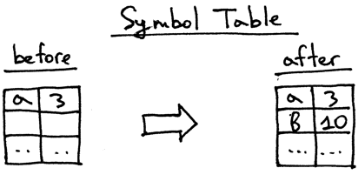 Symbol Table
before
after
a 3
.. ..
a 3
B 10
... ...